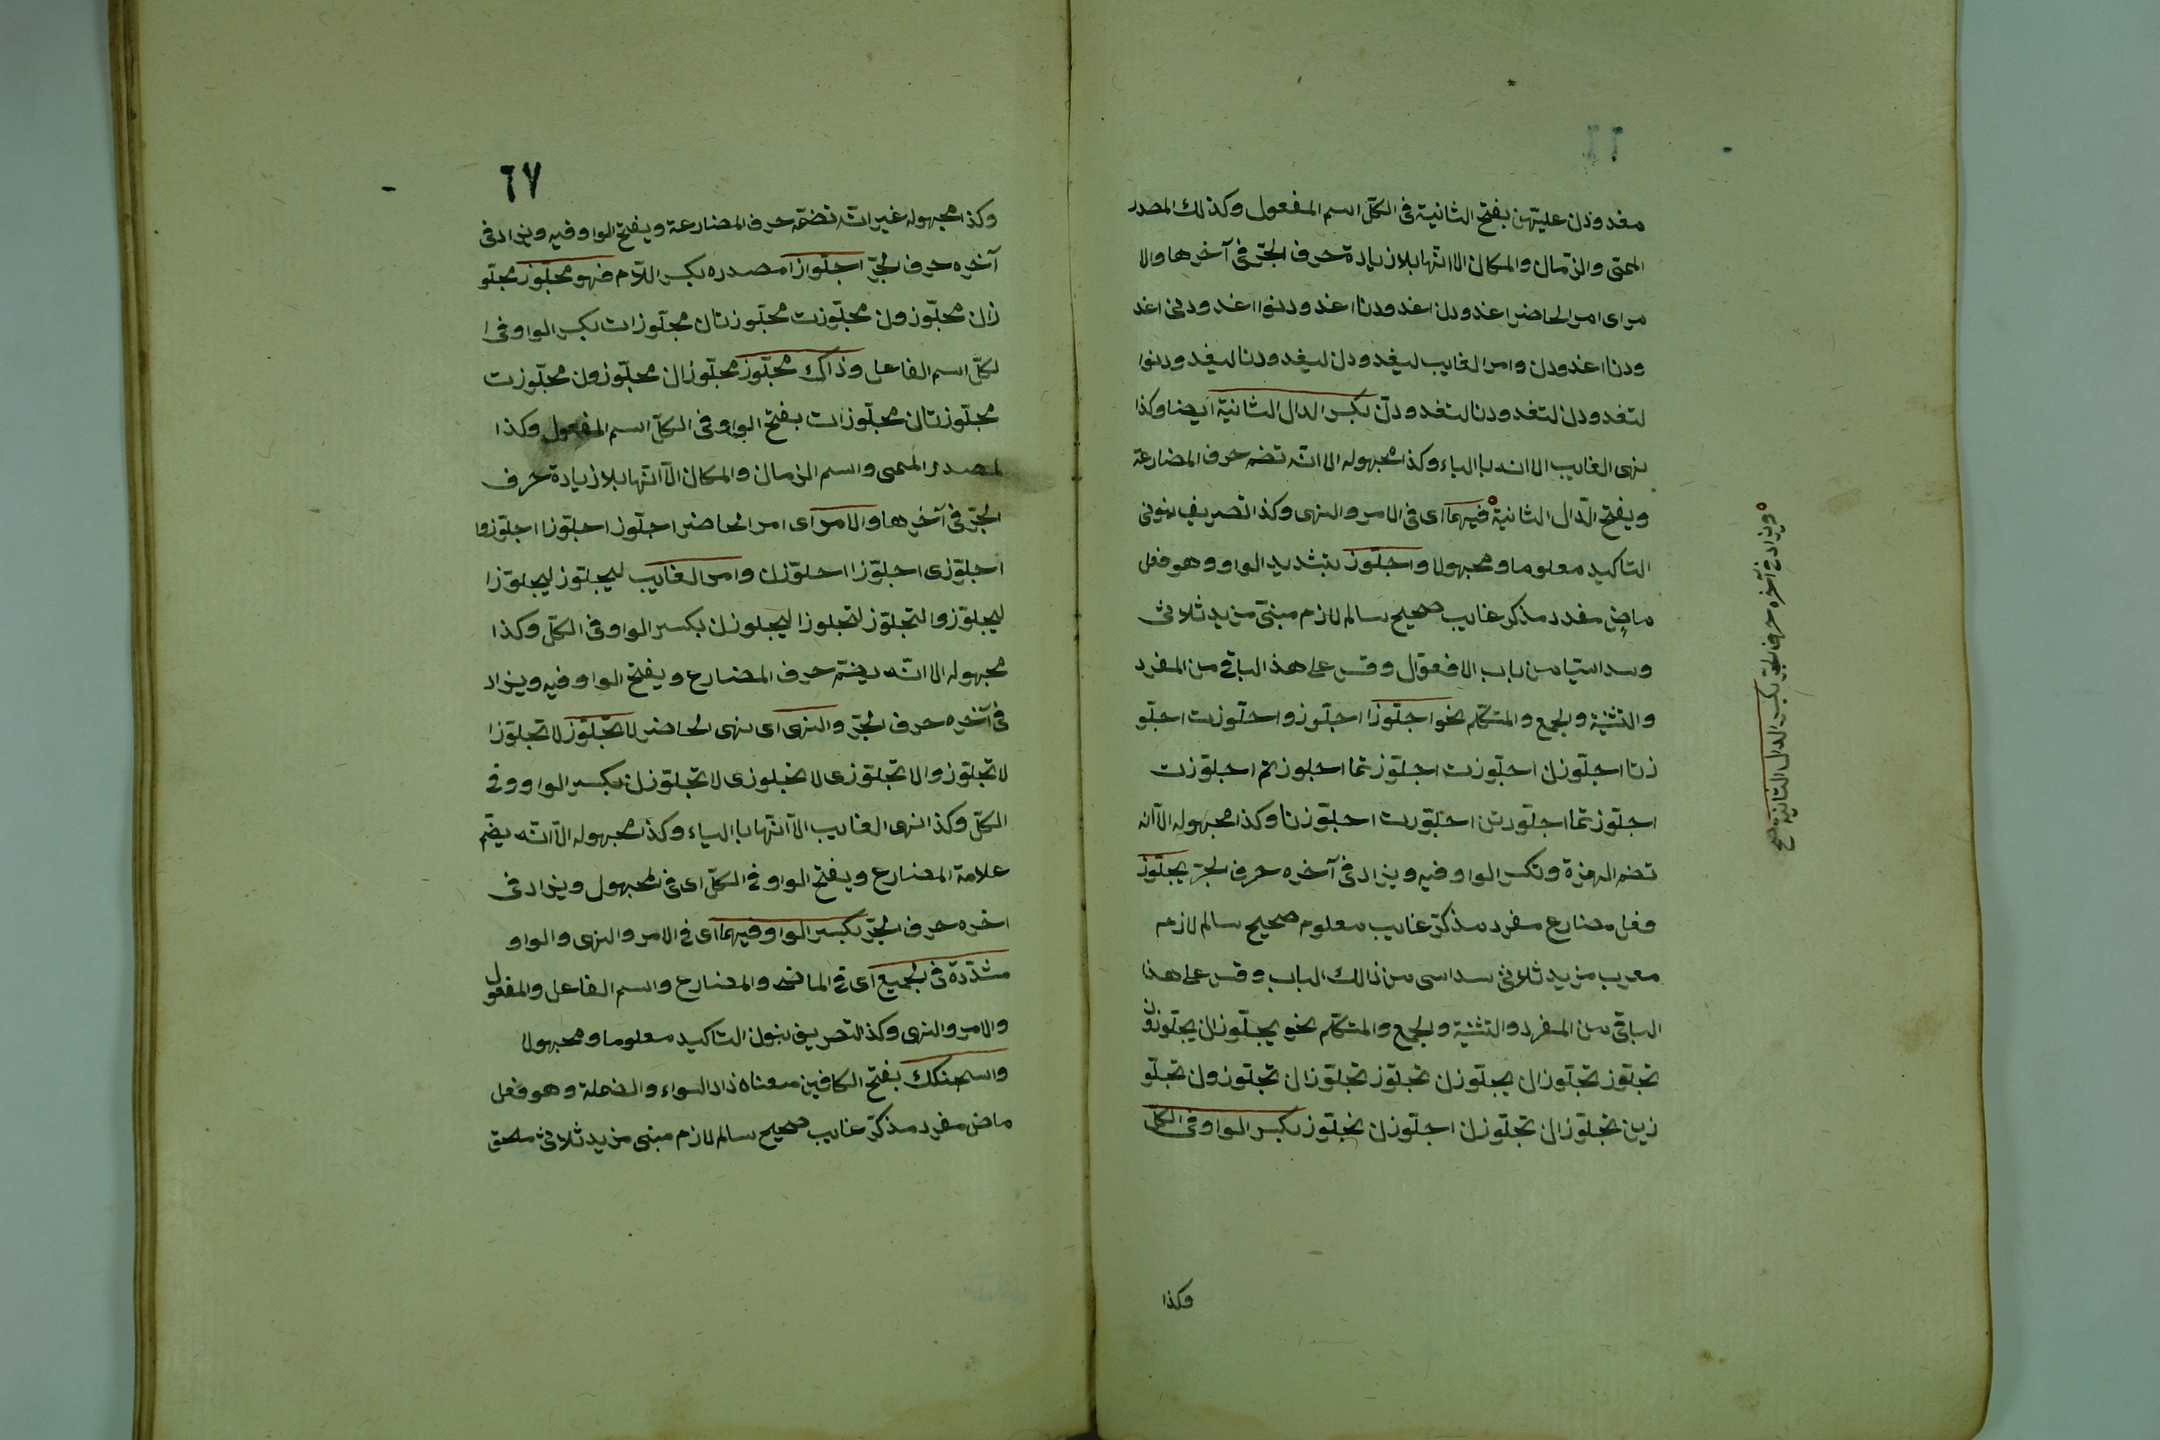 مغدودن عليهن بفتح الثانية فى الكلّ اسم المفعول وكذلك المصدر
الميمى والزمان والمكان الا انها بلا زيادة حرف الجرّ فى آخرها والا
مر اى امر الحاضر اغدودن اغدودنا اغدودنوا اغدودنى اغد
ودنا اغدودن وامر الغايب ليغدودن ليغدودنا ليغدودنوا
لتغدودن لتغدودنا لتغدودنّ بكسر الدال الثانية ايضا وكذا
نهى الغايب الا انه بالياء وكذا مجهوله الا انّه تضم حرف المضارعة
ويفتح الدال الثانية فيهما اى فى الامر والنهى وكذا تصريف بنونى
التاكيد معلوما ومجهولا واجلوّز بتشديد الواو وهو فعل
ماض مفرد مذكر غايب صحيح سالم لازم مبنىّ مزيد ثلاثى
وسداسيا من باب الافعوّال وقس على هذا الباقى من المفرد
والتثنية والجمع والمتكلم نحو اجلوّزا اجلوّزوا اجلوّزت اجلوّ
زتا اجلوّزن اجلوّزت اجلوّزتما اجلوزتم اجلوّزت
اجلوّزتما اجلوّزتن اجلوّزت اجلوّزنا وكذا مجهوله الا انه
تضم الهمزة وتكسر الواو فيه ويزاد فى آخره حرف الجرّ يجلوّز
وفعل مضارع مفرد مذكرّ غايب معلوم صحيح سالم لازم
معرب مزيد ثلاثى سداسى من ذالك الباب وقس على هذا
الباقى من المفرد والتثنية والجمع والمتكلم نحو يجلوّزان يجلوّزون
تجلوّز تجلوّزان يجلوّزن تجلوّز تجلوّزان تجلوّزون تجلوّ
زين تجلوّزان تجلوّزن اجلوّزن نجلوّز بكسر الواو فى الكل
وكذا
ويزاد فى آخره حرف الجرّ بكسر الدال الثانية صح
٦٧
وكذا مجهوله غير انّه تضمّ حرف المضارعة ويفتح الواو فيه ويزاد فى
آخره حرف الجرّ اجلوّازا مصدره بكسر اللام فهو مجلوّز مجلوّ
زان مجلوّزون مجلوّزت مجلوّزتان مجلوّزات بكسر الواو فى ا
لكلّ اسم الفاعل وذاك مجلوّز مجلوّزان مجلوّزون مجلوّزت
مجلوّزتان مجلوّزات بفتح الواو فى الكلّ اسم المفعول وكذا
المصدر الميمى واسم الزمان والمكان الاّ انّها بلا زيادة حرف
الجرّ فى آخرها والامر اى امر الحاضر اجلوّز اجلوّزا اجلوّزوا
اجلوّزى اجلوّزا اجلوّزن وامر الغايب ليجلوّز ليجلوّزا
ليجلوّزوا لتجلوّز لتجلوزا ليجلوزن بكسر الواو فى الكلّ وكذا
مجهوله الا انّه يضمّ حرف المضارع ويفتح الواو فيه ويزاد
فى آخره حرف الجرّ والنهى اى نهى الحاضر لا تجلوّز لا تجلوّزا
لا تجلوّزوا لا تجلوّزى لا تجلوزى لا تجلوّزن بكسر الواو وفى
الكلّ وكذا نهى الغايب الاّ انّها بالياء وكذا مجهوله الاّ انّه يضّم
علامة المضارع ويفتح الواو فى الكلّ اى فى المجهول ويزاد فى
اخره حرف الجرّ بكسر الواو فيهما اى فى الامر والنهى والواو
مشدّدة فى الجميع اى فى الماضى والمضارع واسم الفاعل والمفعول
والامر والنهى وكذا التصريف بنون التاكيد معلوما ومجهولا
واسحنكك بفتح الكافين معناه زاد السواء والضملة وهو فعل
ماض مفرد مذكرّ غايب صحيح سالم لازم مبنى مزيد ثلاثى ملحق